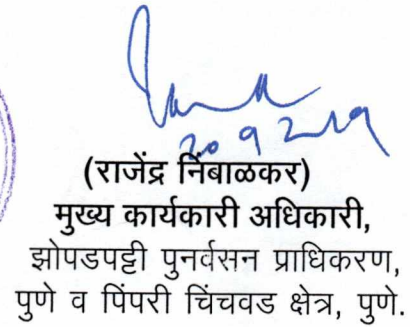 20 9 2019
(राजेंद्र निंबाळकर)
मुख्य कार्यकारी अधिकारी,
झोपडपट्टी पुनर्वसन प्राधिकरण,
पुणे व पिंपरी चिंचवड क्षेत्र, पुणे.